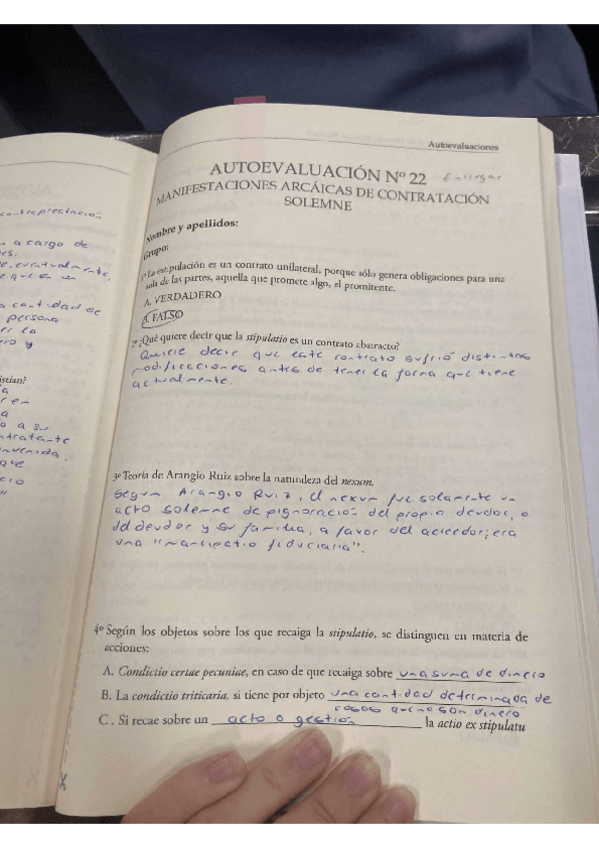 contraprestación
a cargo de
cantidad de
persona
stian?
a
o a su
ntratante
que
Autoevaluaciones
AUTOEVALUACIÓN Nº 22
MANIFESTACIONES ARCÁICAS DE CONTRATACIÓN
SOLEMNE
Nombre y apellidos:
Grupo:
1º La estipulación es un contrato unilateral, porque sólo genera obligaciones para una
sola de las partes, aquella que promete algo, el promitente.
A. VERDADERO
B. FALSO
2º ¿Qué quiere decir que la stipulatio es un contrato abstracto?
Quiere decir que este contrato sufrió distintas
modificaciones antes de tener la forma que tiene
actualmente.
3º Teoría de Arangio Ruiz sobre la naturaleza del nexum.
Según Arangio Ruiz, el nexum fue solamente un
acto solemne de pignoración del propio deudor, o
del deudor y su familia, a favor del acreedor; era
una "mancipatio fiduciaria".
4º Según los objetos sobre los que recaiga la stipulatio, se distinguen en materia de
acciones:
A. Condictio certae pecuniae, en caso de que recaiga sobre una suma de dinero
B. La condictio triticaria, si tiene por objeto una cantidad determinada de
cosas que no son dinero
C. Si recae sobre un acto o gestión la actio ex stipulatu